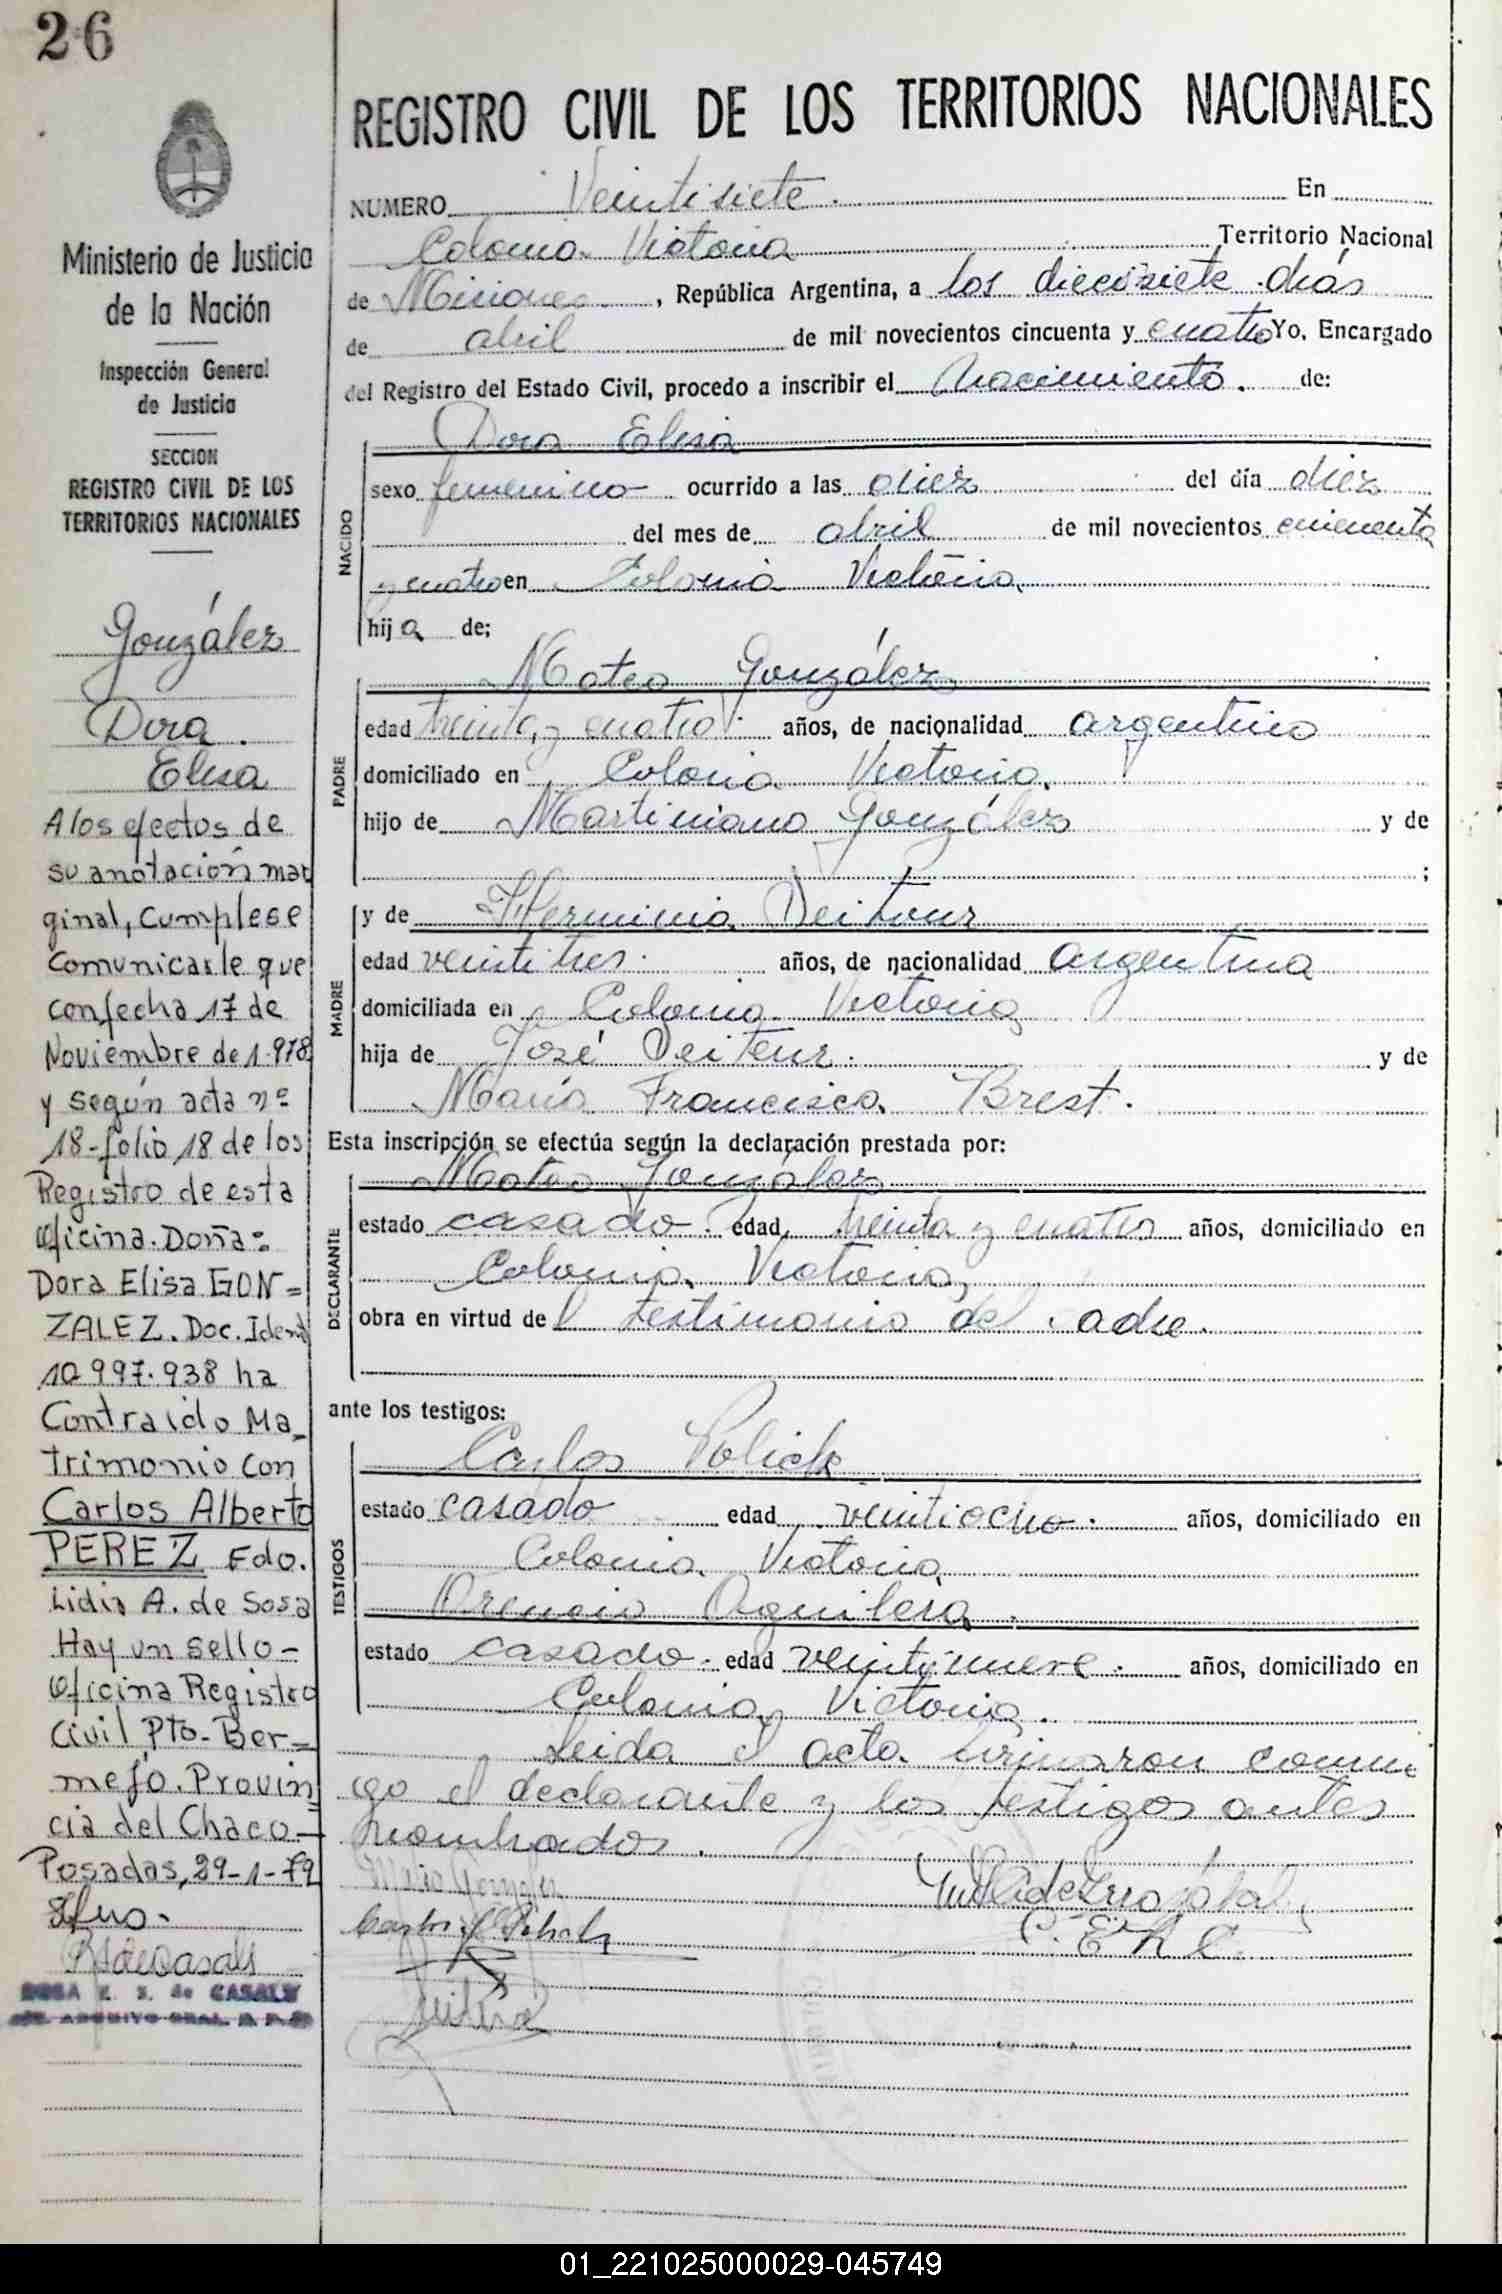 26
Ministerio de Justicia
de la Nación
Inspección General
de Justicia
SECCION
REGISTRO CIVIL DE LOS
TERRITORIOS NACIONALES
González
Dora
Elisa
A los efectos de
su anotación mar
ginal, Cumplese
Comunicarle que
con fecha 17 de
Noviembre de 1.978
y según acta nº
18-folio 18 de los
Registro de esta
Oficina. Doña:
Dora Elisa GON=
ZALEZ. Doc. Ident
10.997.938 ha
Contraido Ma_
trimonio con
Carlos Alberto
PEREZ Fdo.
Lidia A. de Sosa
Hay un sello-
Oficina Registro
Civil Pto. Ber=
mejo. Provin
cia del Chaco-
Posadas, 29-1-79
de CASALS
REGISTRO CIVIL DE LOS TERRITORIOS NACIONALES
NUMERO Veintisiete. En
Colonia Victoria Territorio Nacional
de Misiones, República Argentina, a los diecisiete días
de abril de mil novecientos cincuenta y cuatro Yo, Encargado
del Registro del Estado Civil, procedo a inscribir el Nacimiento. de:
Dora Elisa
NACIDO
sexo femenino ocurrido a las diez del día diez
del mes de abril de mil novecientos cincuenta
y cuatro en Colonia Victoria,
hija de;
Mateo González
PADRE
edad treinta y cuatro. años, de nacionalidad argentino
domiciliado en Colonia Victoria,
hijo de Martiniano González y de
;
MADRE
y de Herminia Deiteur
edad veintitres. años, de nacionalidad argentina
domiciliada en Colonia Victoria
hija de José Deiteur. y de
María Francisca Brest.
Esta inscripción se efectúa según la declaración prestada por:
Mateo González
DECLARANTE
estado casado. edad treinta y cuatro años, domiciliado en
Colonia Victoria,
obra en virtud del testimonio del adre.
ante los testigos:
TESTIGOS
Carlos Polick
estado casado edad veintiocho. años, domiciliado en
Colonia Victoria
Orencio Aguilera.
estado casado. edad veintinueve. años, domiciliado en
Colonia Victoria.
Leida el acta firmaron conmi
go el declarante y los testigos antes
nombrados.
E.R.C.
01_221025000029-045749